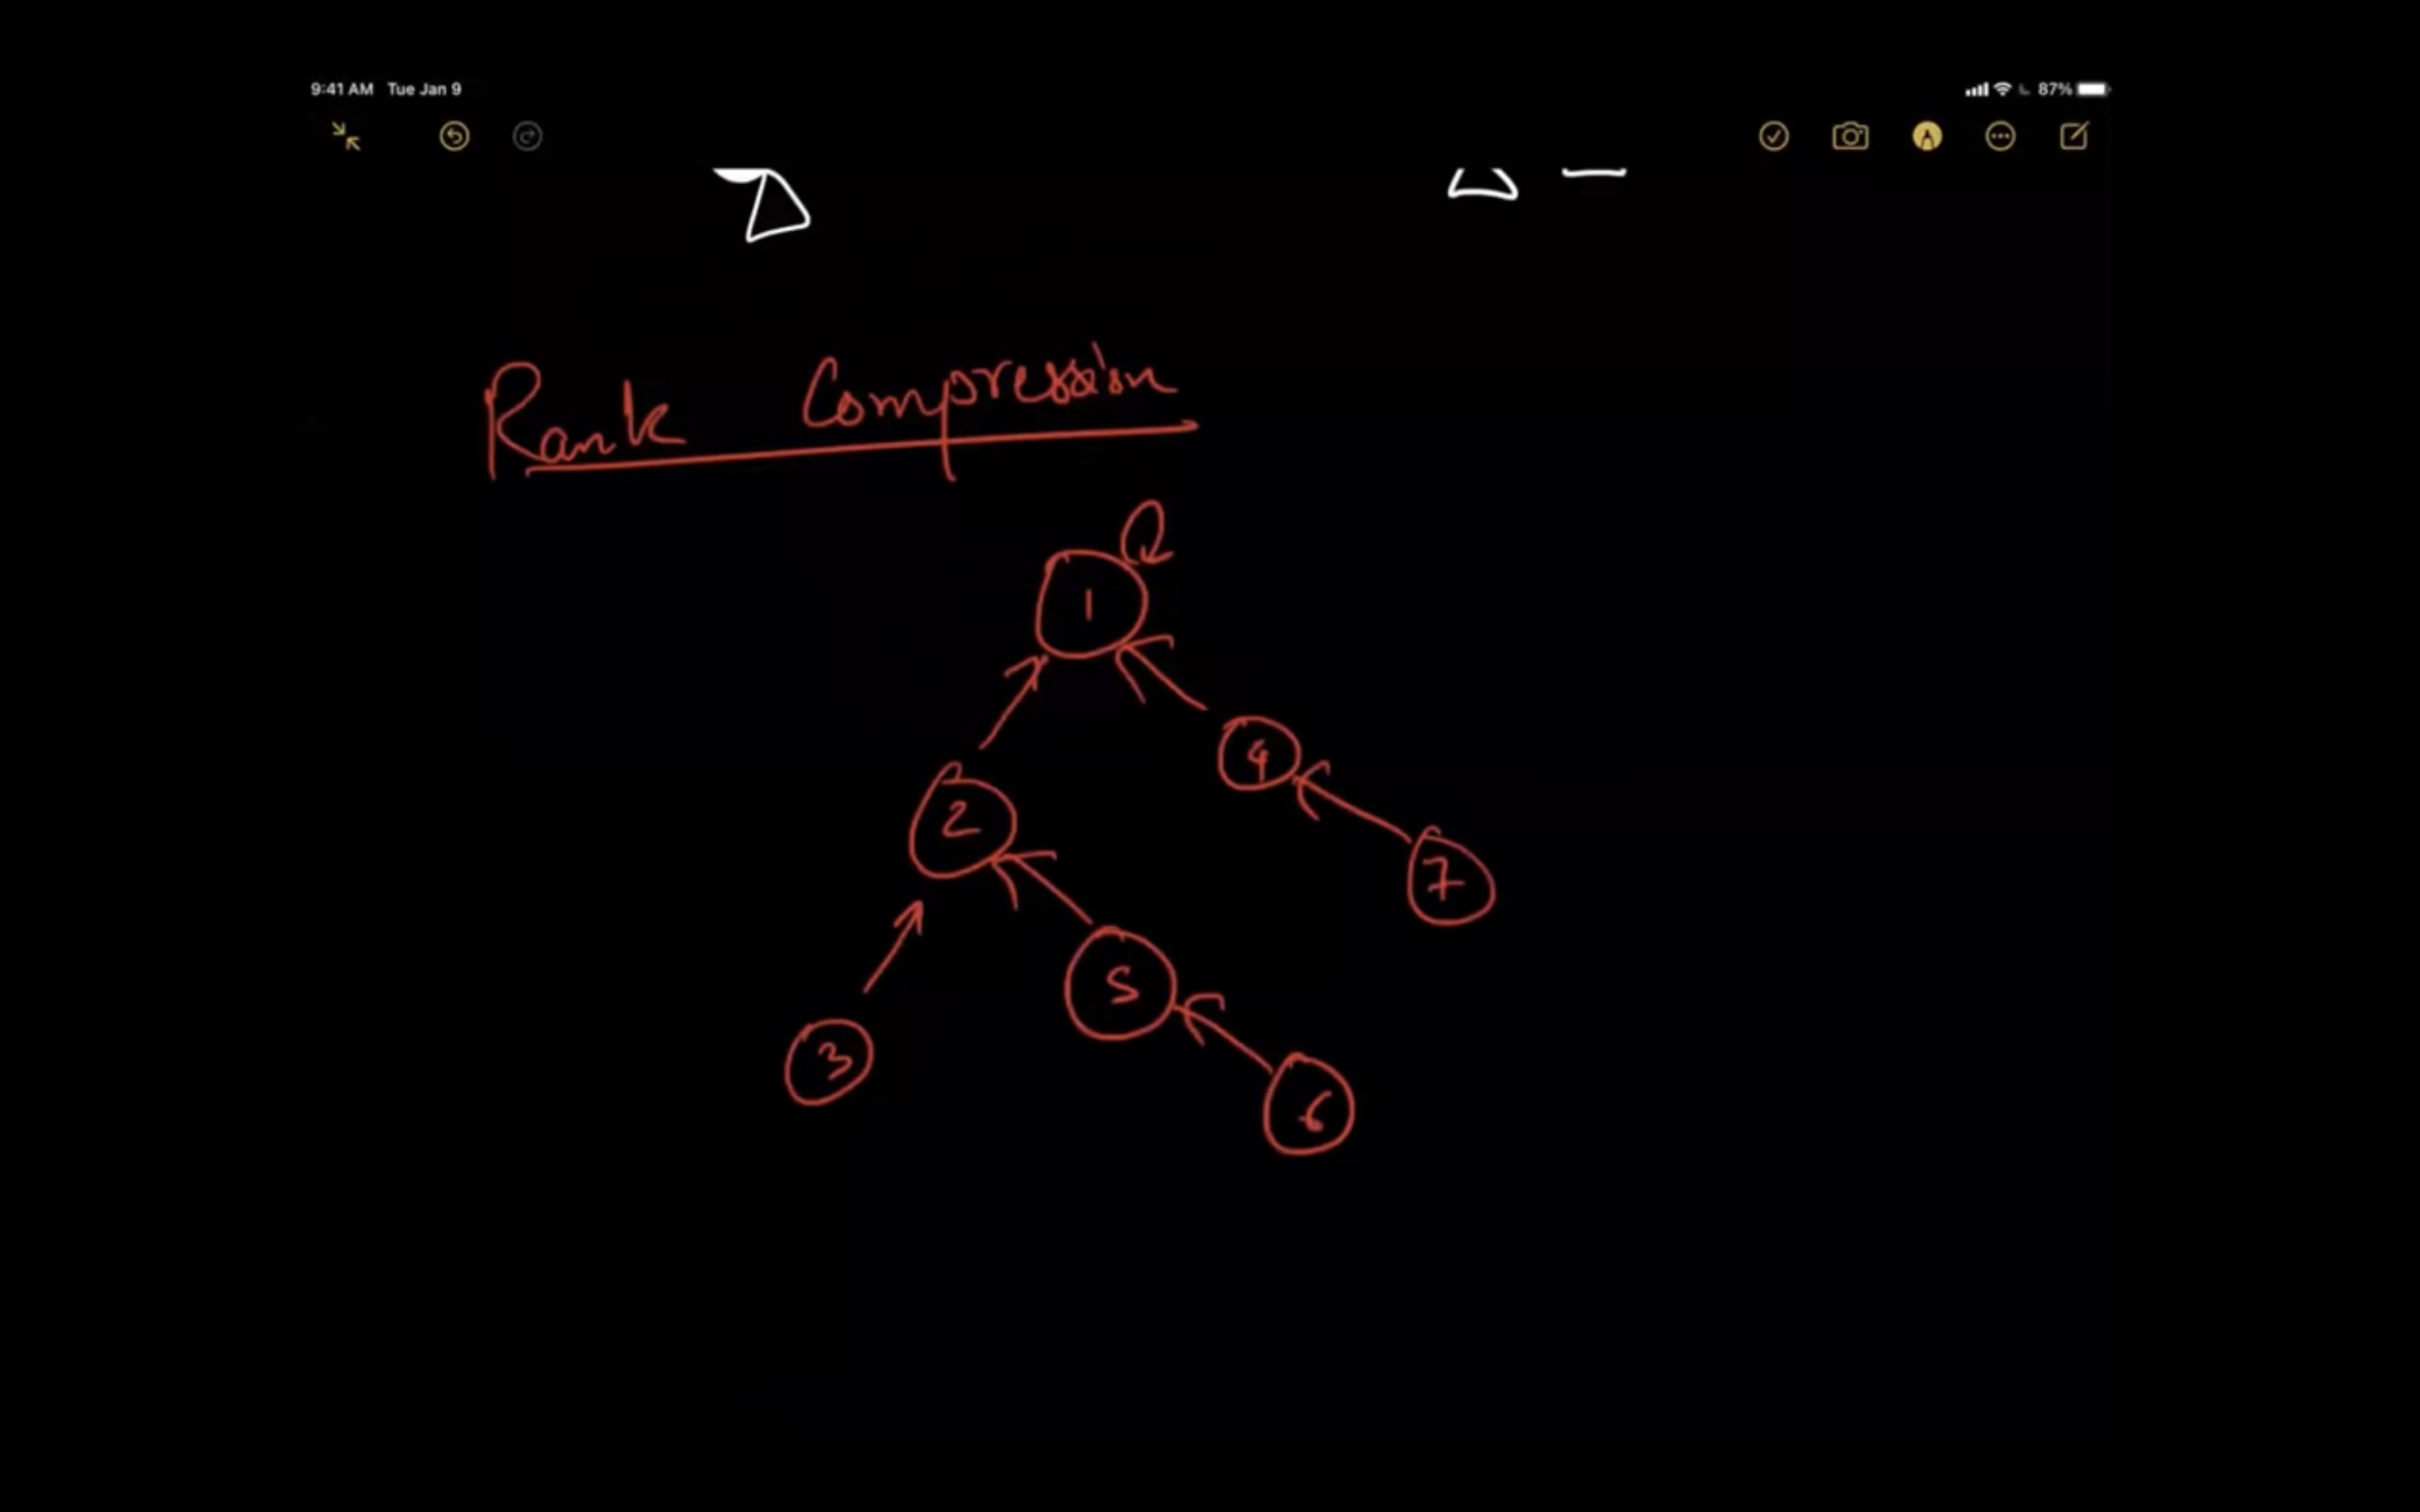 9:41 AM Tue Jan 9 87%
Rank Compression
1
4
2
7
5
3
6